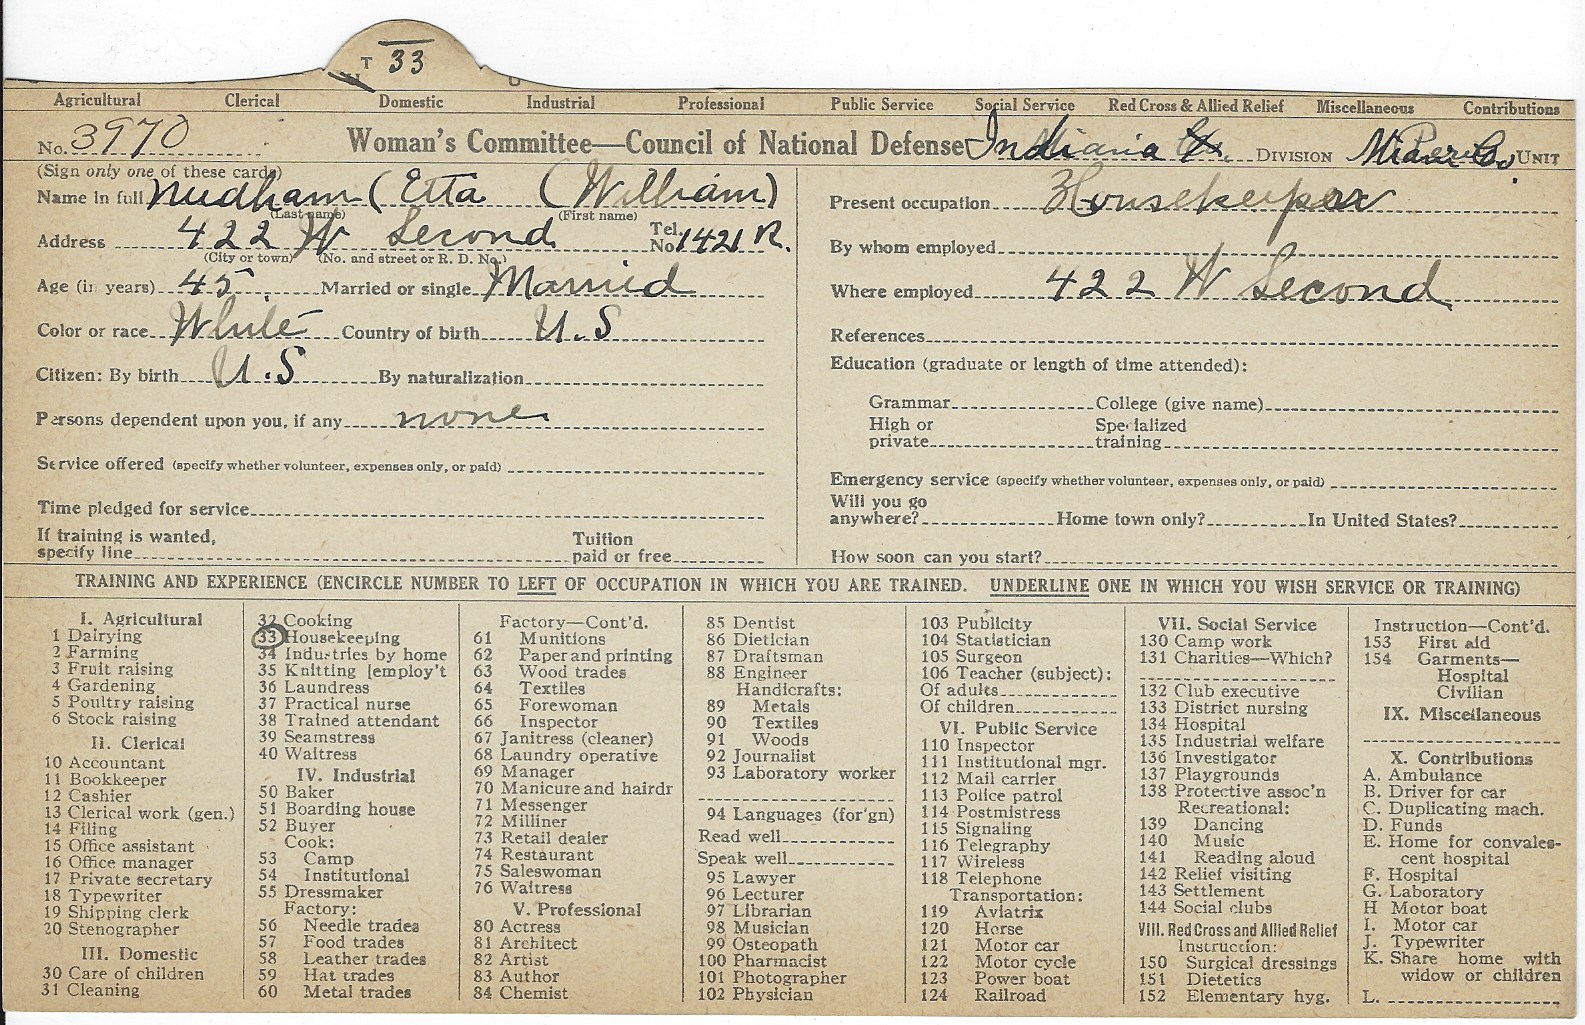 T 33
Agricultural Clerical Domestic Industrial Professional Public Service Social Service Red Cross & Allied Relief Miscellaneous Contributions
No. 3970 Woman's Committee—Council of National Defense Indiana DIVISION UNIT
(Sign only one of these cards)
Name in full Nudham (Etta (William)
(Last name) (First name)
Address 422 W Second Tel. No. 1421 R.
(City or town) (No. and street or R. D. No.)
Age (in years) 45. Married or single Married
Color or race White Country of birth U.S
Citizen: By birth U.S By naturalization
Persons dependent upon you, if any none
Service offered (specify whether volunteer, expenses only, or paid)
Time pledged for service
If training is wanted,
specify line Tuition paid or free
Present occupation Housekeeper
By whom employed
Where employed 422 W Second
References
Education (graduate or length of time attended):
Grammar College (give name)
High or private Specialized training
Emergency service (specify whether volunteer, expenses only, or paid)
Will you go
anywhere? Home town only? In United States?
How soon can you start?
TRAINING AND EXPERIENCE (ENCIRCLE NUMBER TO LEFT OF OCCUPATION IN WHICH YOU ARE TRAINED. UNDERLINE ONE IN WHICH YOU WISH SERVICE OR TRAINING)
I. Agricultural
1 Dairying
2 Farming
3 Fruit raising
4 Gardening
5 Poultry raising
6 Stock raising
II. Clerical
10 Accountant
11 Bookkeeper
12 Cashier
13 Clerical work (gen.)
14 Filing
15 Office assistant
16 Office manager
17 Private secretary
18 Typewriter
19 Shipping clerk
20 Stenographer
III. Domestic
30 Care of children
31 Cleaning
32 Cooking
33 Housekeeping
34 Industries by home
35 Knitting [employ't
36 Laundress
37 Practical nurse
38 Trained attendant
39 Seamstress
40 Waitress
IV. Industrial
50 Baker
51 Boarding house
52 Buyer
Cook:
53 Camp
54 Institutional
55 Dressmaker
Factory:
56 Needle trades
57 Food trades
58 Leather trades
59 Hat trades
60 Metal trades
Factory—Cont'd.
61 Munitions
62 Paper and printing
63 Wood trades
64 Textiles
65 Forewoman
66 Inspector
67 Janitress (cleaner)
68 Laundry operative
69 Manager
70 Manicure and hairdr
71 Messenger
72 Milliner
73 Retail dealer
74 Restaurant
75 Saleswoman
76 Waitress
V. Professional
80 Actress
81 Architect
82 Artist
83 Author
84 Chemist
85 Dentist
86 Dietician
87 Draftsman
88 Engineer
Handicrafts:
89 Metals
90 Textiles
91 Woods
92 Journalist
93 Laboratory worker
94 Languages (for'gn)
Read well
Speak well
95 Lawyer
96 Lecturer
97 Librarian
98 Musician
99 Osteopath
100 Pharmacist
101 Photographer
102 Physician
103 Publicity
104 Statistician
105 Surgeon
106 Teacher (subject):
Of adults
Of children
VI. Public Service
110 Inspector
111 Institutional mgr.
112 Mail carrier
113 Police patrol
114 Postmistress
115 Signaling
116 Telegraphy
117 Wireless
118 Telephone
Transportation:
119 Aviatrix
120 Horse
121 Motor car
122 Motor cycle
123 Power boat
124 Railroad
VII. Social Service
130 Camp work
131 Charities—Which?
132 Club executive
133 District nursing
134 Hospital
135 Industrial welfare
136 Investigator
137 Playgrounds
138 Protective assoc'n
Recreational:
139 Dancing
140 Music
141 Reading aloud
142 Relief visiting
143 Settlement
144 Social clubs
VIII. Red Cross and Allied Relief
Instruction:
150 Surgical dressings
151 Dietetics
152 Elementary hyg.
Instruction—Cont'd.
153 First aid
154 Garments—
Hospital
Civilian
IX. Miscellaneous
X. Contributions
A. Ambulance
B. Driver for car
C. Duplicating mach.
D. Funds
E. Home for convales-
cent hospital
F. Hospital
G. Laboratory
H Motor boat
I. Motor car
J. Typewriter
K. Share home with
widow or children
L.